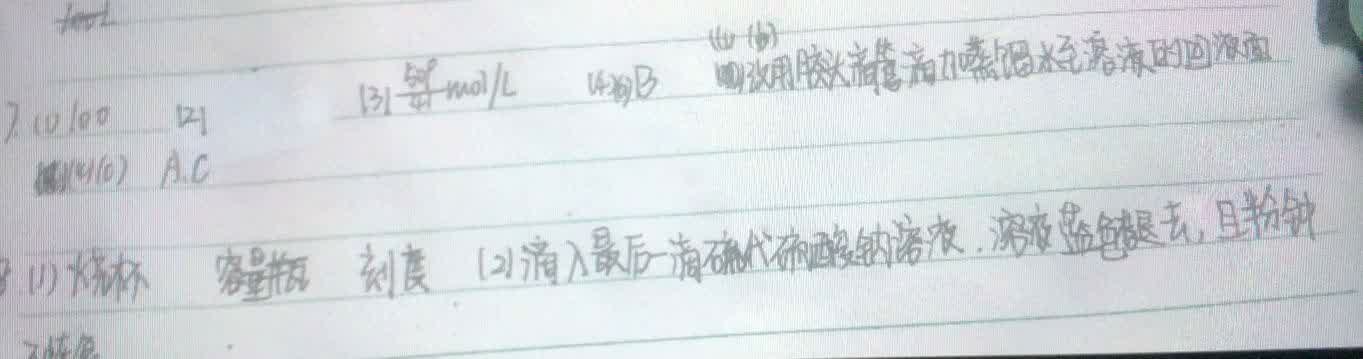 7. (1) 100 (2) (3) 50ρ/41 mol/L (4)(a)B (4)(b) 改用胶头滴管滴加蒸馏水至溶液的凹液面
(4)(c) A.C
8.(1)烧杯 容量瓶 刻度 (2)滴入最后一滴硫代硫酸钠溶液,溶液蓝色褪去,且半分钟